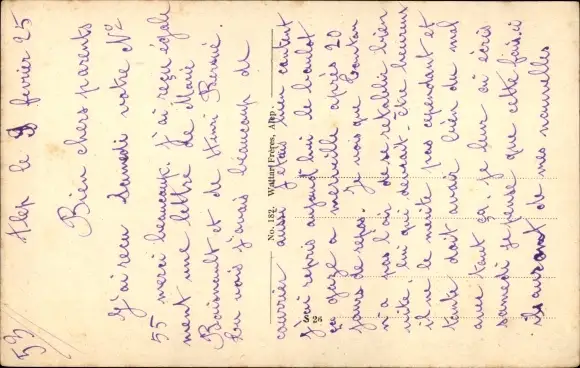 Alep le 9 fevrier 25
53
Bien chers parents
J'ai recu samedi votre No
55 merci beaucoup. J'ai reçu égale
ment une lettre de Marie
Boisnault et de Mimi Remié.
Leu vois j'avais beaucoup de
No. 132. Wattar Frères, Alep.
S 26
courrier aussi j'étais bien content
J'ai repris aujourd'hui le boulot
ça gaze a merveille après 20
jours de repos. Je vois que tonton
n'a pas l'air de se retablir bien
vite, lui qui devrait-être heureux
il ne le merite pas cependant et
tante doit avoir bien du mal
avec tout ça. je leur ai écris
samedi je pense que cette fois-ci
ils auront de mes nouvelles